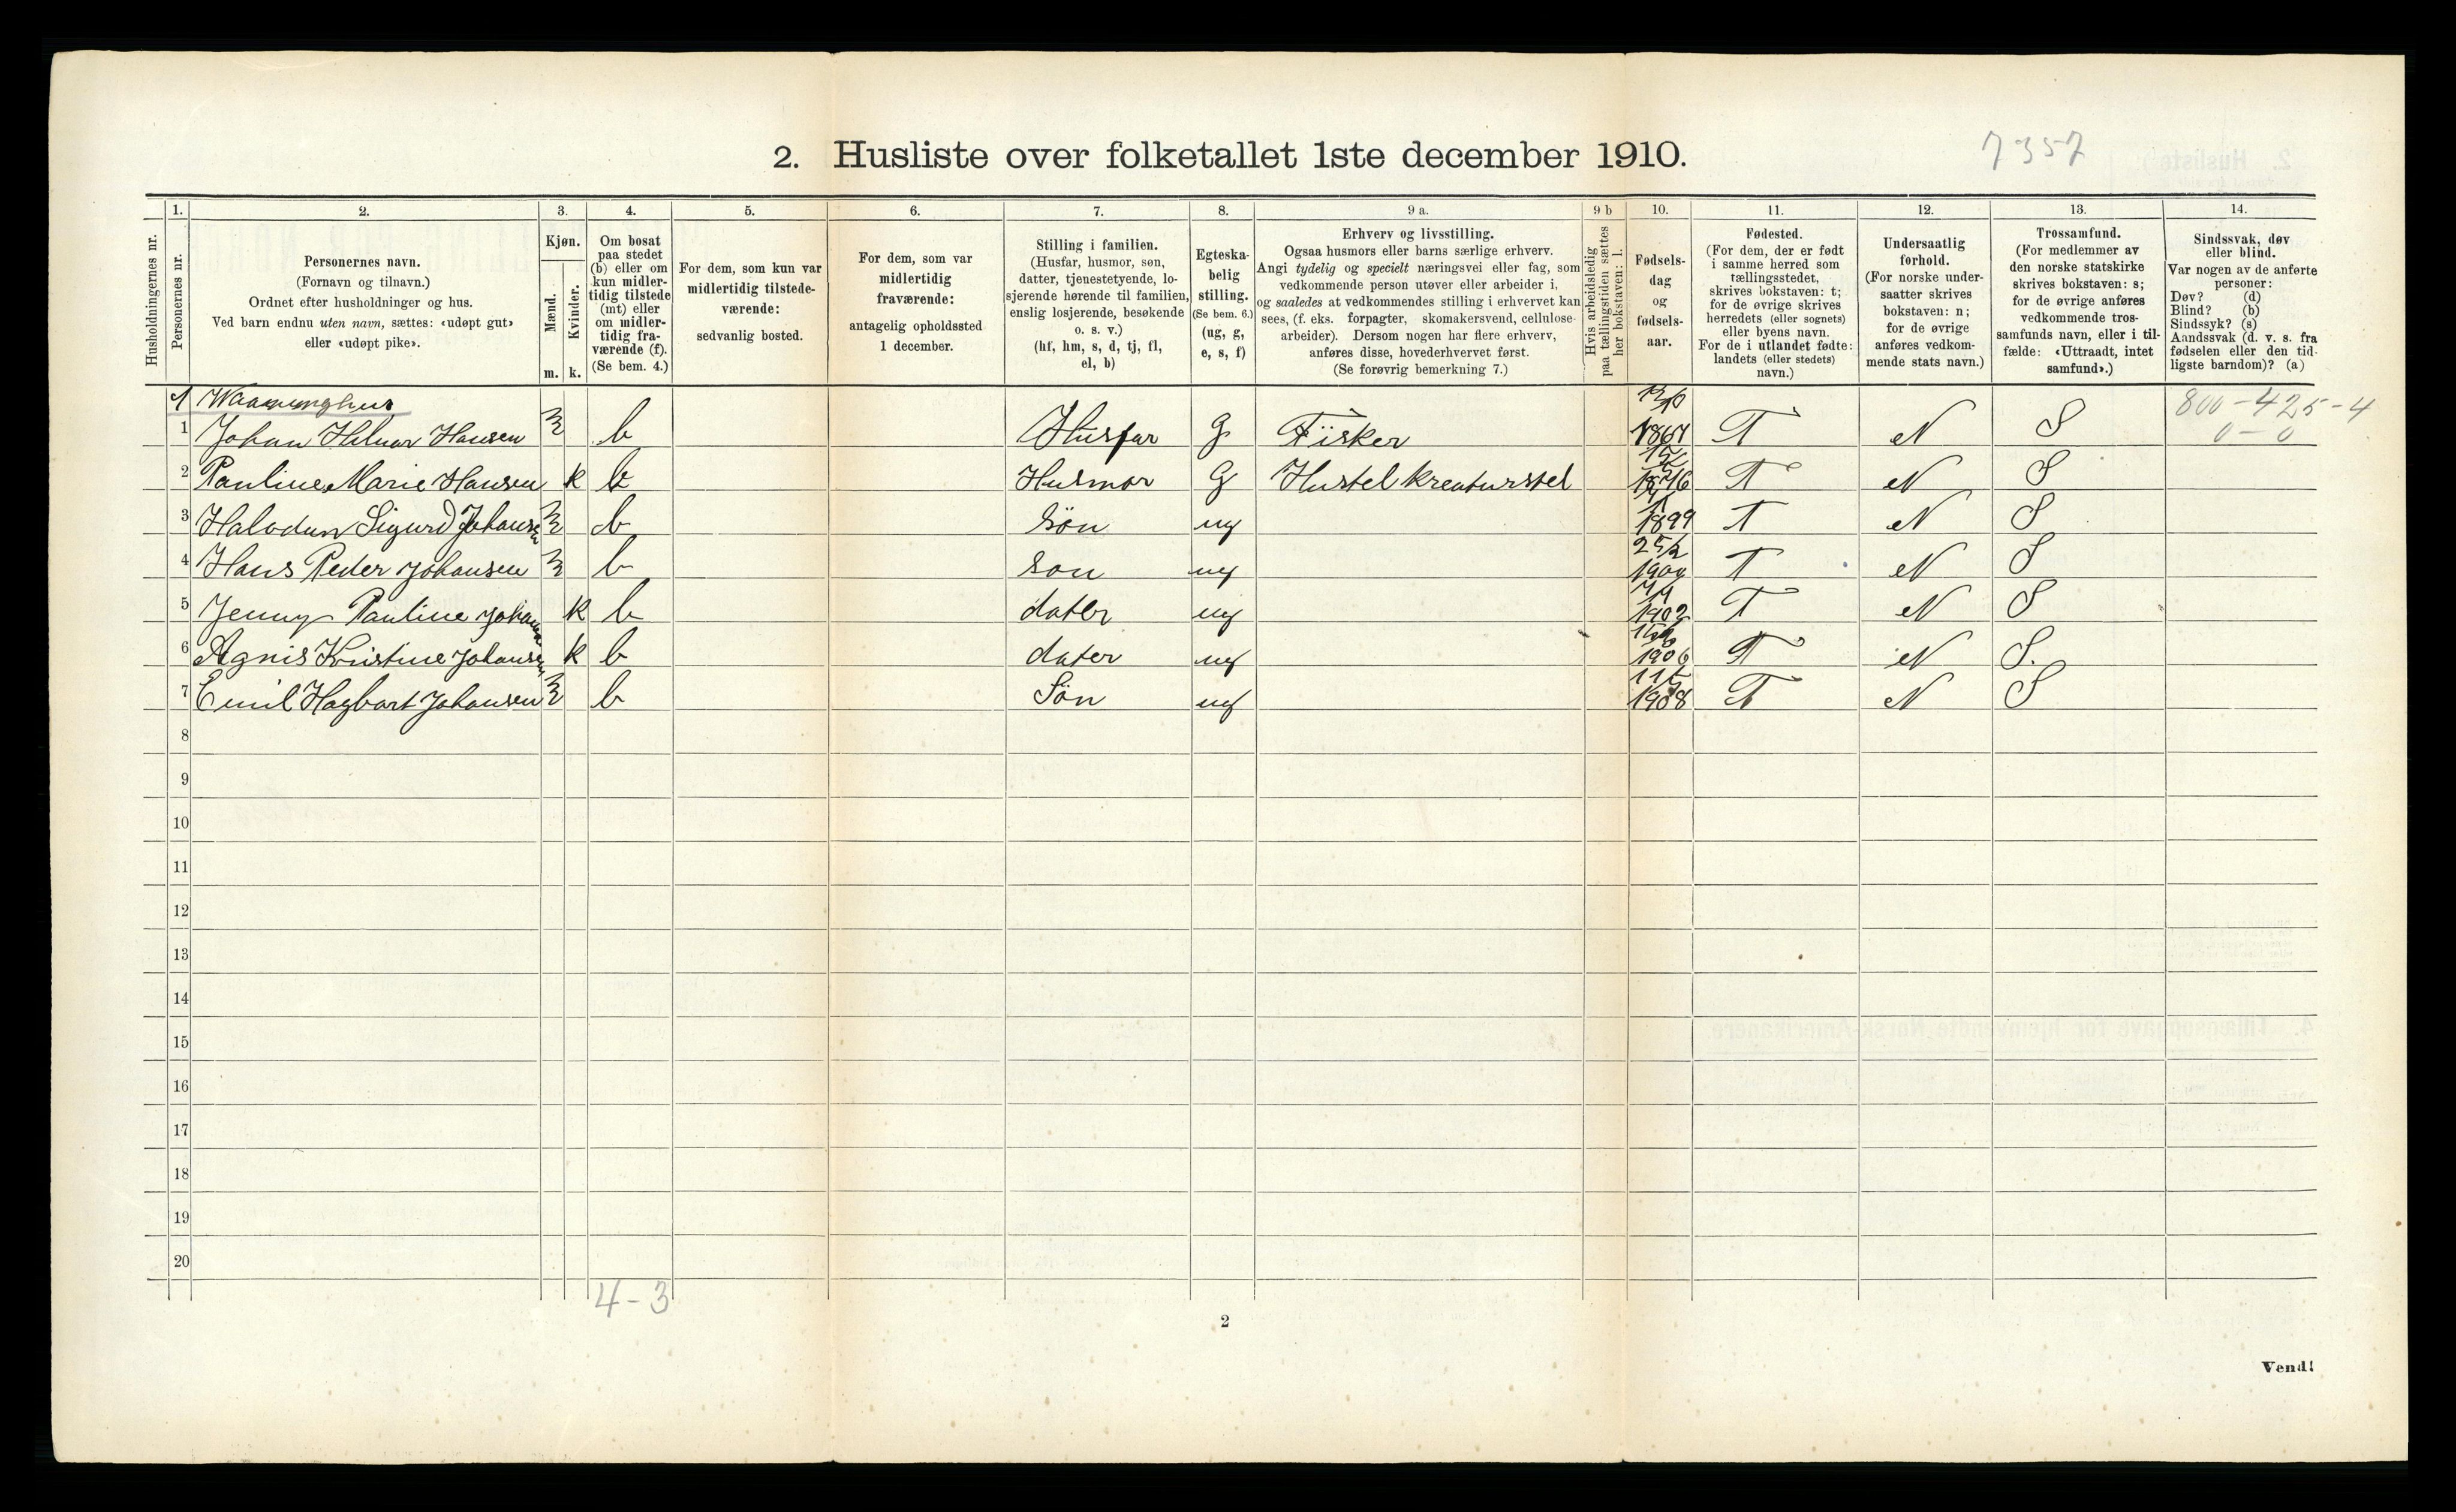 7357
2. Husliste over folketallet 1ste december 1910.
Husholdningernes nr.
1.
Personernes nr.
2.
Personernes navn.
(Fornavn og tilnavn.)
Ordnet efter husholdninger og hus.
Ved barn endnu uten navn, sættes: «udøpt gut»
eller «udøpt pike».
3.
Kjøn.
Mænd.
Kvinder.
m. k.
4.
Om bosat
paa stedet
(b) eller om
kun midler-
tidig tilstede
(mt) eller
om midler-
tidig fra-
værende (f).
(Se bem. 4.)
5.
For dem, som kun var
midlertidig tilstede-
værende:
sedvanlig bosted.
6.
For dem, som var
midlertidig
fraværende:
antagelig opholdssted
1 december.
7.
Stilling i familien.
(Husfar, husmor, søn,
datter, tjenestetyende, lo-
sjerende hørende til familien,
enslig losjerende, besøkende
o. s. v.)
(hf, hm, s, d, tj, fl,
el, b)
8.
Egteska-
belig
stilling.
(Se bem. 6.)
(ug, g,
e, s, f)
9 a.
Erhverv og livsstilling.
Ogsaa husmors eller barns særlige erhverv.
Angi tydelig og specielt næringsvei eller fag, som
vedkommende person utøver eller arbeider i,
og saaledes at vedkommendes stilling i erhvervet kan
sees, (f. eks. forpagter, skomakersvend, cellulose-
arbeider). Dersom nogen har flere erhverv,
anføres disse, hovederhvervet først.
(Se forøvrig bemerkning 7.)
9 b
Hvis arbeidsledig
paa tællingstiden sættes
her bokstaven: l.
10.
Fødsels-
dag
og
fødsels-
aar.
11.
Fødested.
(For dem, der er født
i samme herred som
tællingsstedet,
skrives bokstaven: t;
for de øvrige skrives
herredets (eller sognets)
eller byens navn.
For de i utlandet fødte:
landets (eller stedets)
navn.)
12.
Undersaatlig
forhold.
(For norske under-
saatter skrives
bokstaven: n;
for de øvrige
anføres vedkom-
mende stats navn.)
13.
Trossamfund.
(For medlemmer av
den norske statskirke
skrives bokstaven: s;
for de øvrige anføres
vedkommende tros-
samfunds navn, eller i til-
fælde: «Uttraadt, intet
samfund».)
14.
Sindssvak, døv
eller blind.
Var nogen av de anførte
personer:
Døv? (d)
Blind? (b)
Sindssyk? (s)
Aandssvak (d. v. s. fra
fødselen eller den tid-
ligste barndom)? (a)
1 800-425-4
1 Johan Hilmar Hansen m b Husfar G Fisker T N S 0-0
2 Pauline Marie Hansen k b Husmor G Hustel kreaturstel 1876 T N S
3 Halvdan Sigurd Johansen m b Søn ug 1899 T N S
4 Hans Peder Johansen m b son ug T N S
5 Jenny Pauline Johansen k b dater ug 1902 T N S
6 Agnis Kristine Johansen k b dater ug 1906 T N S.
7 Emil Hagbart Johansen m b Søn ug 1908 T N S
8
9
10
11
12
13
14
15
16
17
18
19
20
4-3
2
Vend!